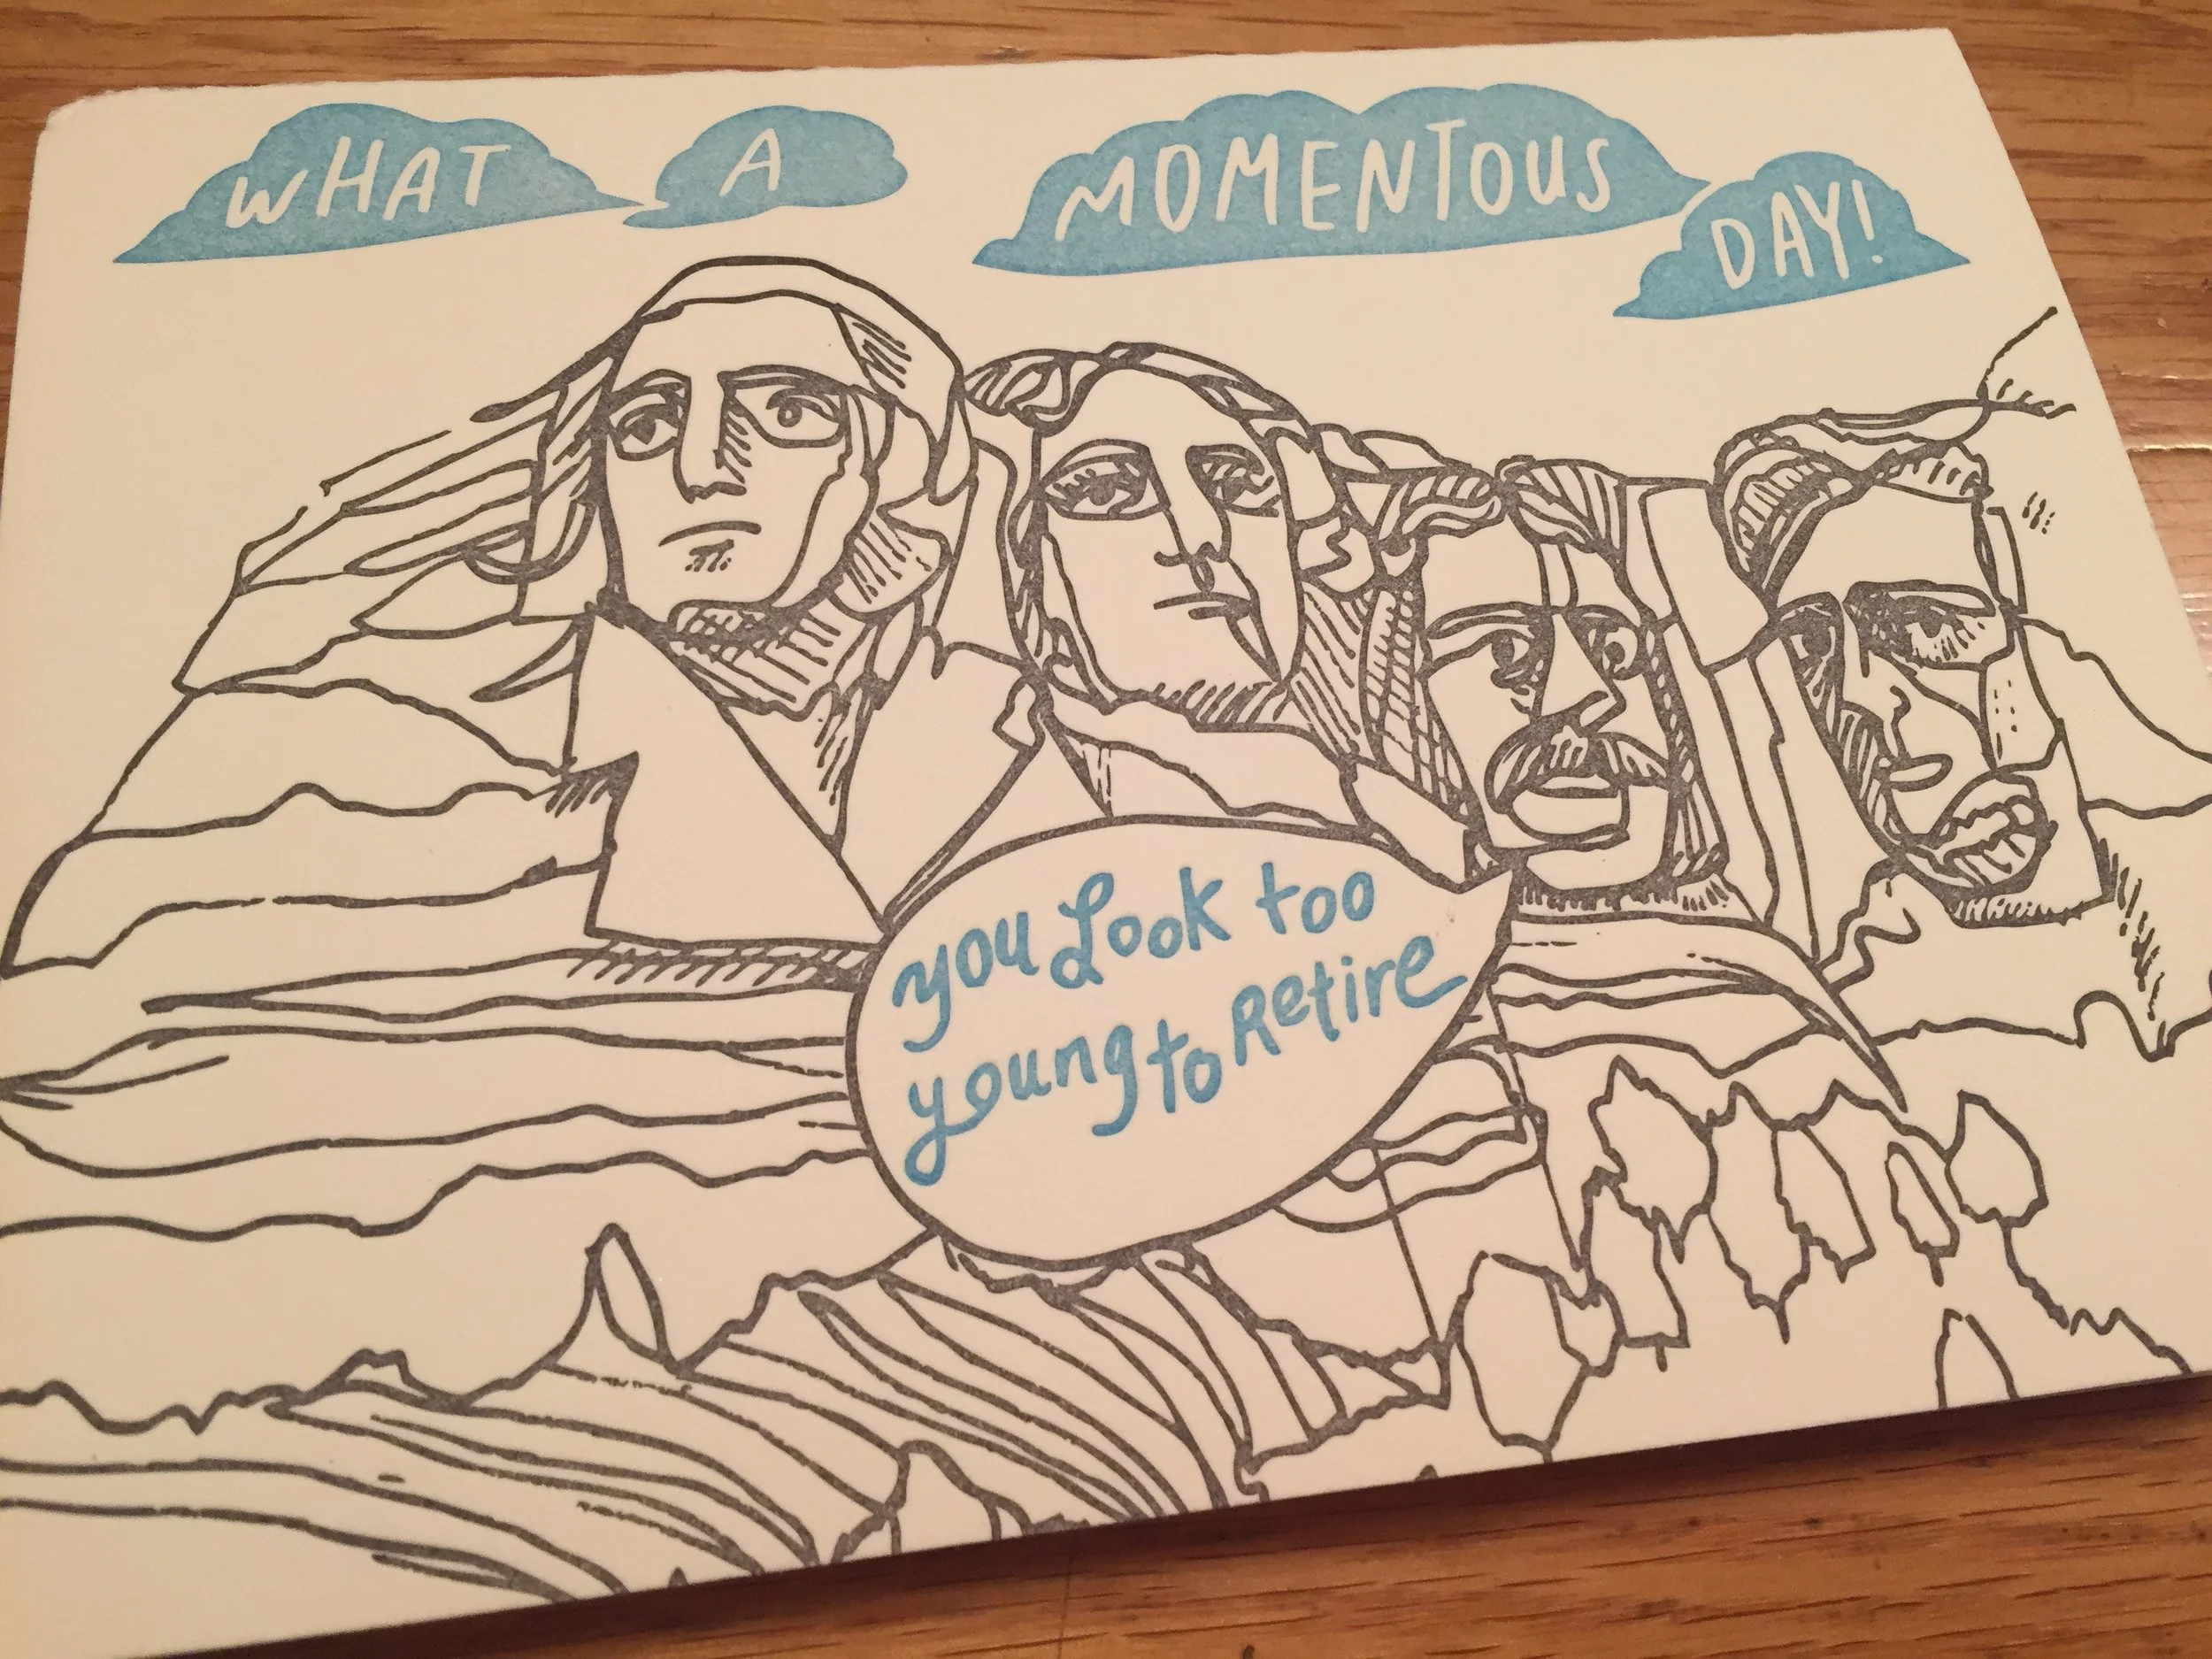 WHAT A MOMENTOUS DAY!
you Look too
young to Retire